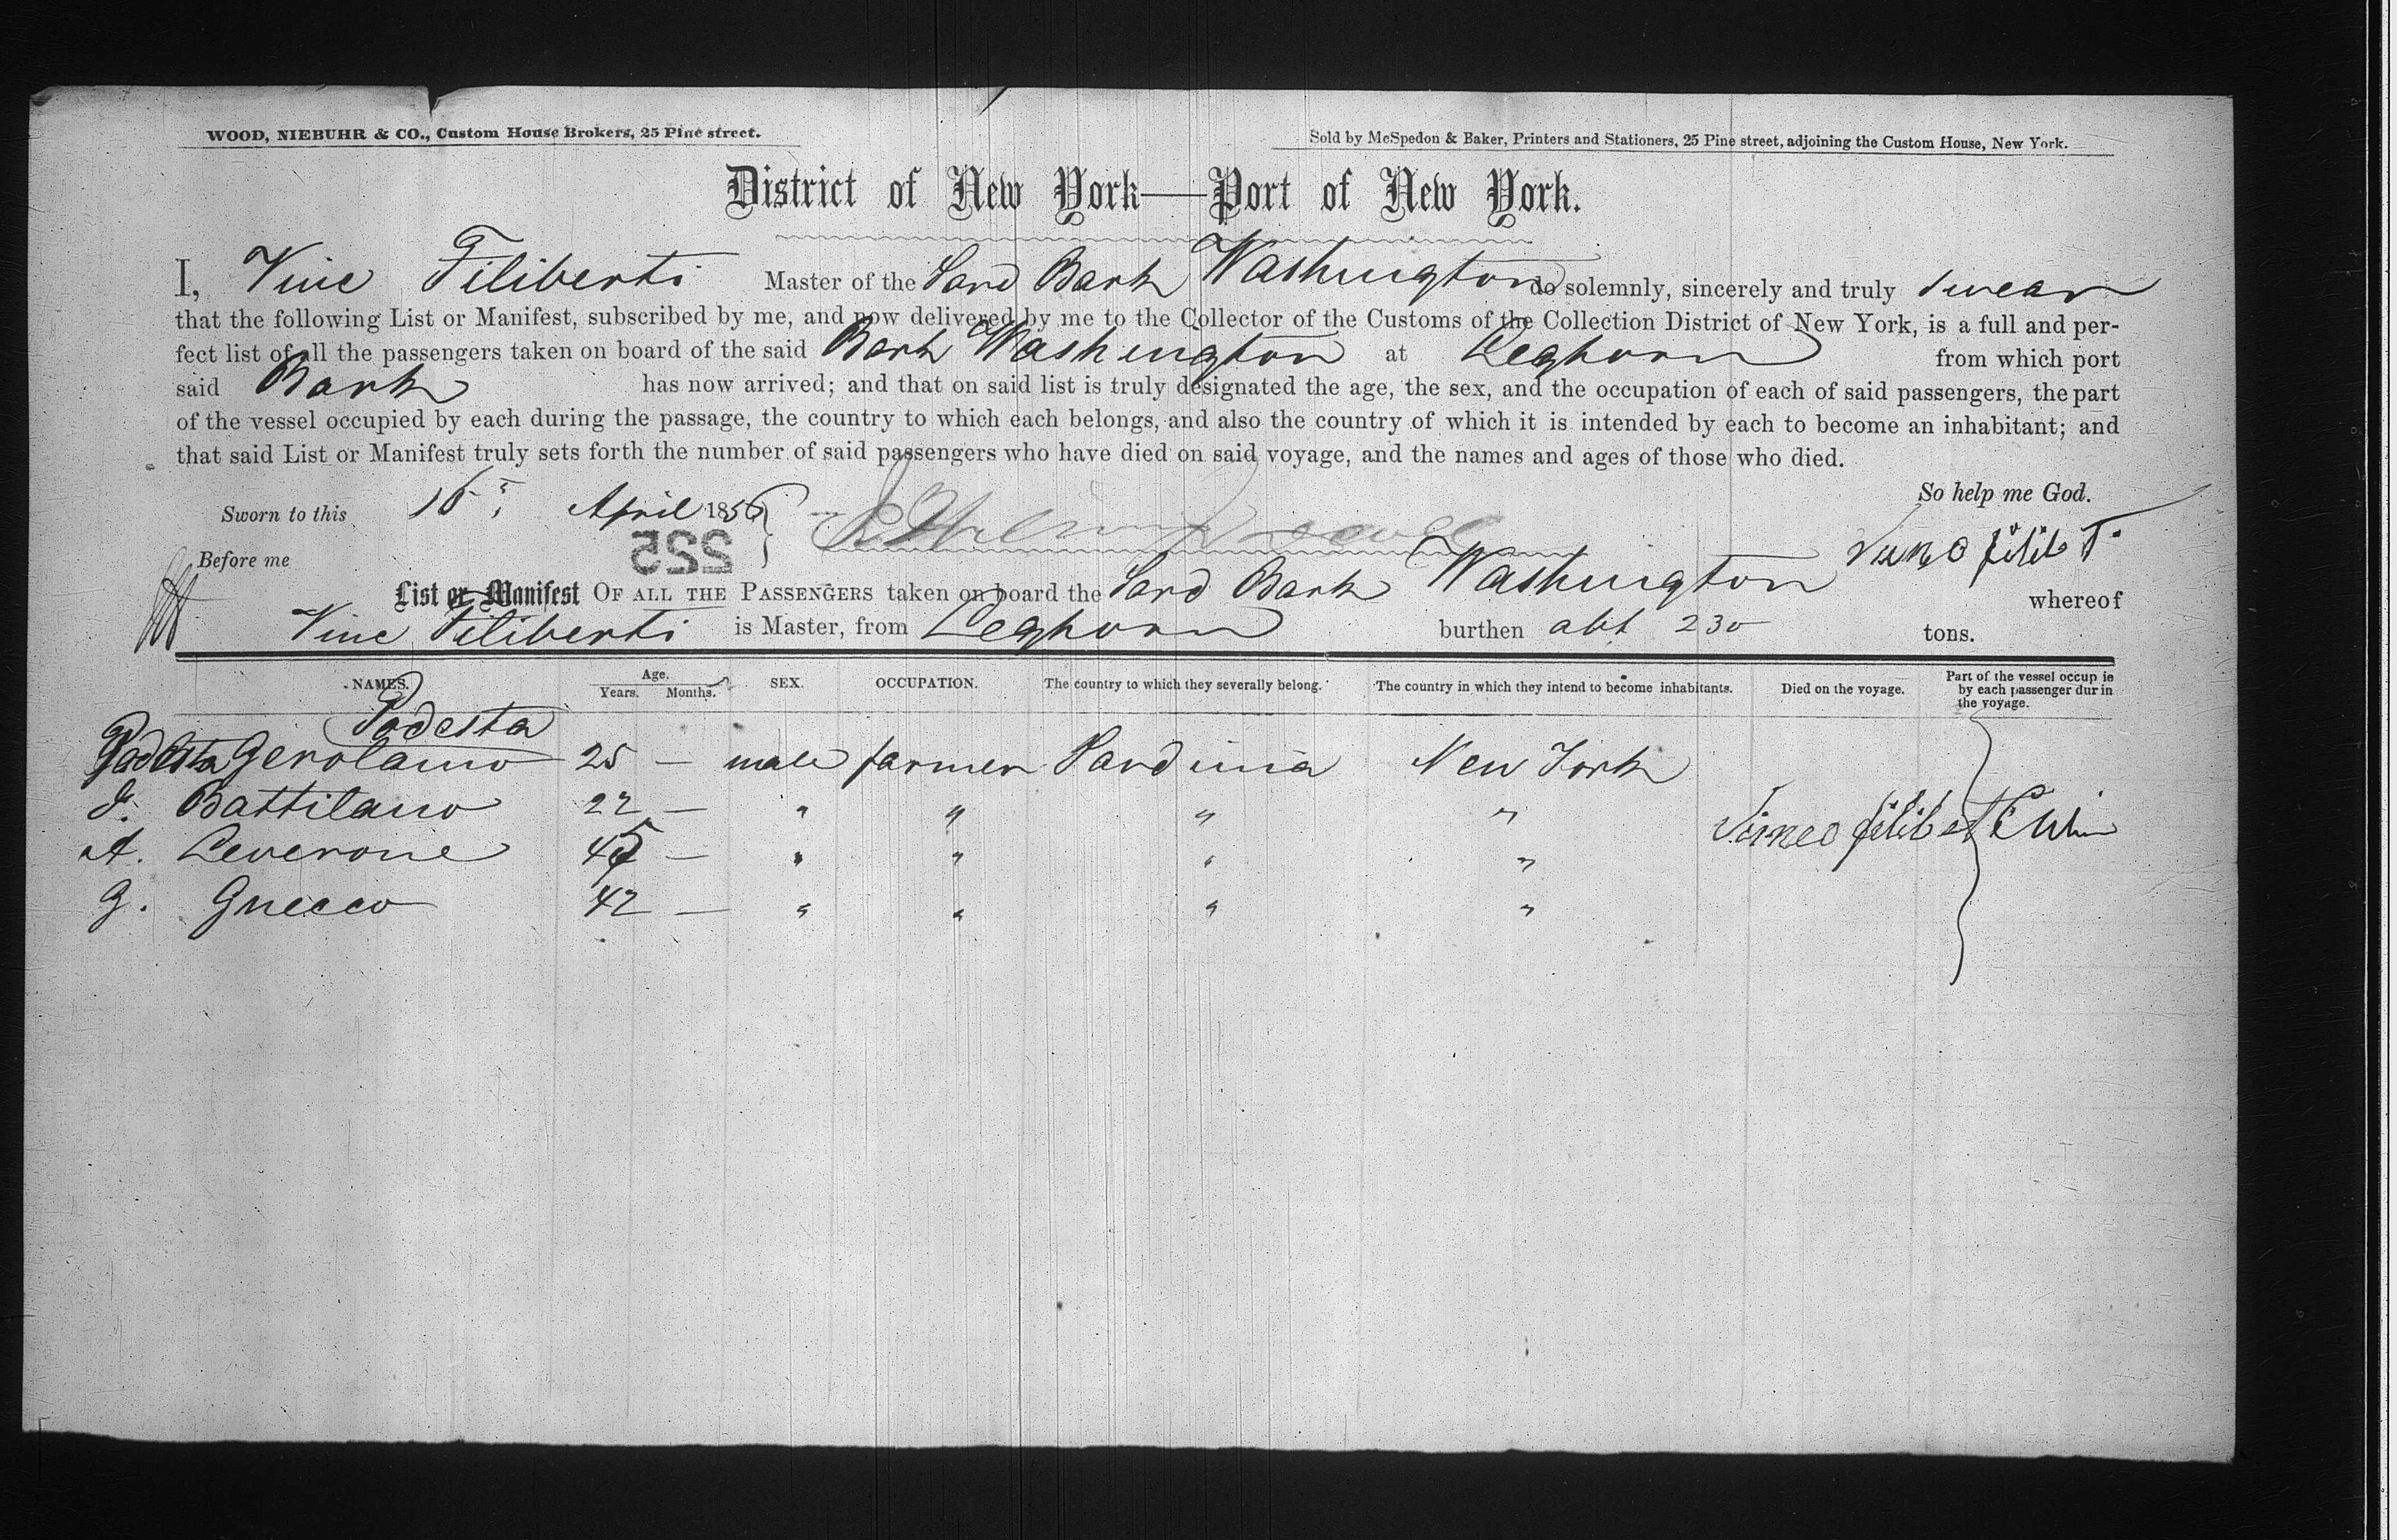 WOOD, NIEBUHR & CO., Custom House Brokers, 25 Pine street.
Sold by McSpedon & Baker, Printers and Stationers, 25 Pine street, adjoining the Custom House, New York.
District of New York—Port of New York.
I, Vinc Filiberti Master of the Sard Bark Washington do solemnly, sincerely and truly swear
that the following List or Manifest, subscribed by me, and now delivered by me to the Collector of the Customs of the Collection District of New York, is a full and per-
fect list of all the passengers taken on board of the said Bark Washington at Leghorn from which port
said Bark has now arrived; and that on said list is truly designated the age, the sex, and the occupation of each of said passengers, the part
of the vessel occupied by each during the passage, the country to which each belongs, and also the country of which it is intended by each to become an inhabitant; and
that said List or Manifest truly sets forth the number of said passengers who have died on said voyage, and the names and ages of those who died.
So help me God.
Sworn to this 16 April 1856
Before me
555
List or Manifest OF ALL THE PASSENGERS taken on board the Sard Bark Washington whereof
Vinc Filiberti is Master, from Leghorn burthen abt 230 tons.
NAMES. Age. Years. Months. SEX. OCCUPATION. The country to which they severally belong. The country in which they intend to become inhabitants. Died on the voyage. Part of the vessel occupie by each passenger durin the voyage.
Podesta
Podesta Gerolamo 25 — male farmer Sardinia New York
Battilano 22 — " " " "
A. Leverone 45 — " " " "
G. Gnecco 42 — " " " "